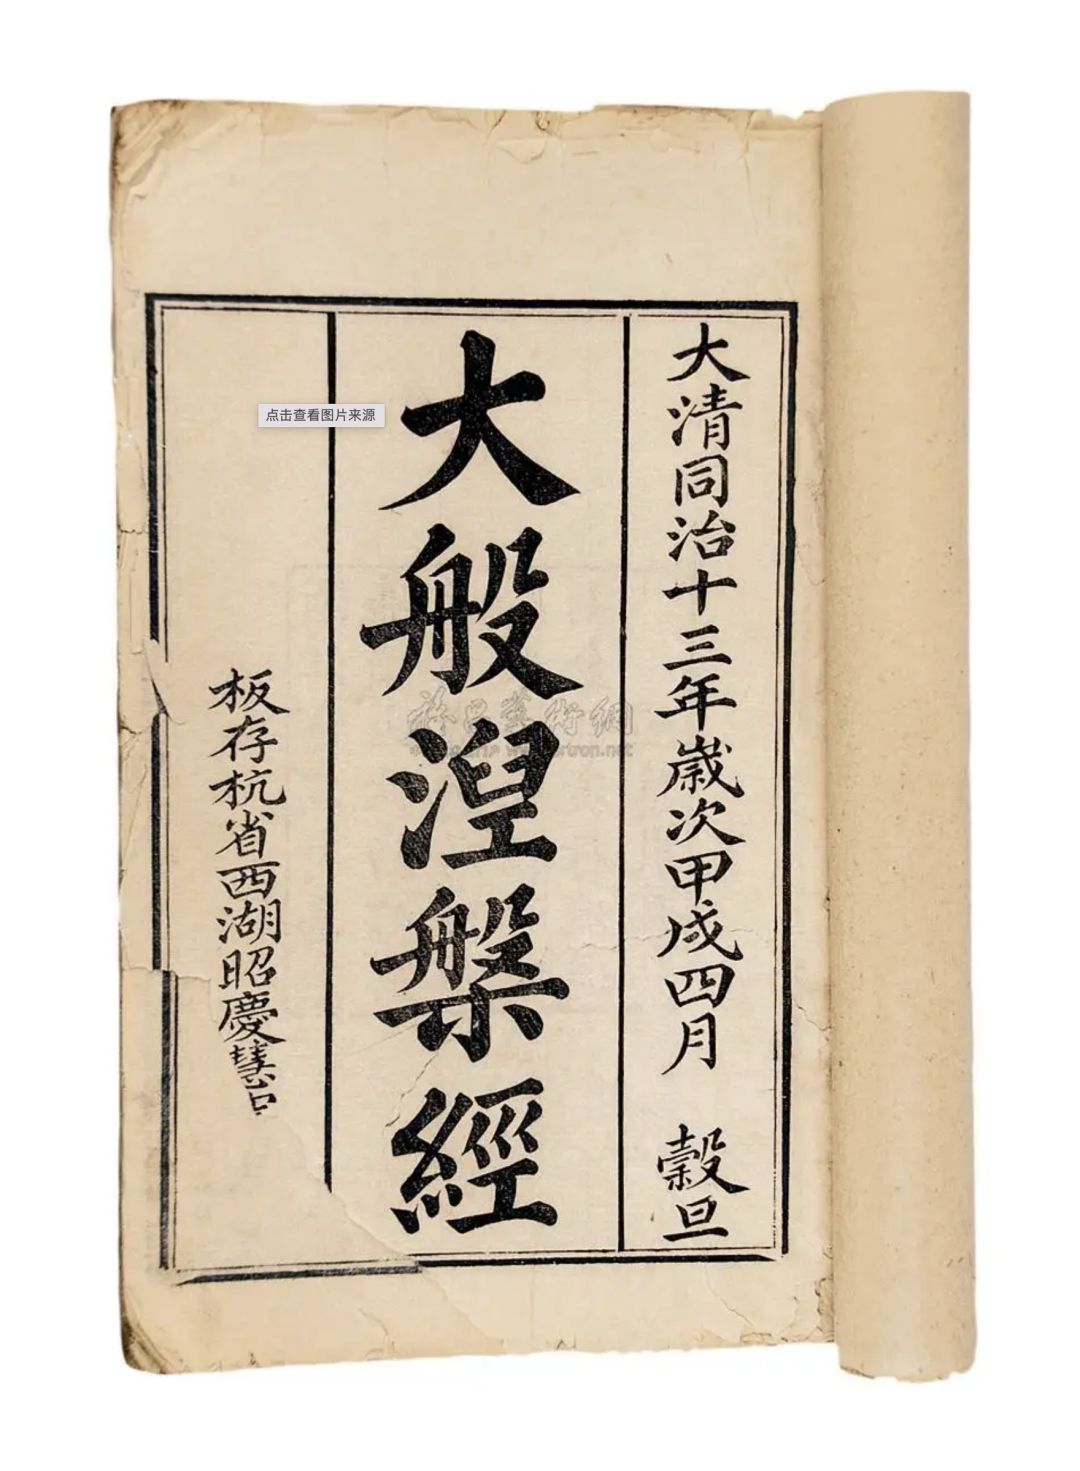 大清同治十三年歲次甲戌四月 穀旦
大般湼槃經
板存杭省西湖昭慶慧
点击查看图片来源